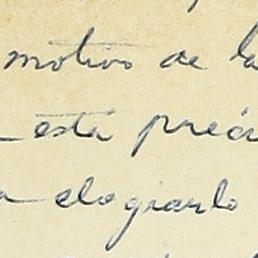 motivo de la
está preci
elogiarlo